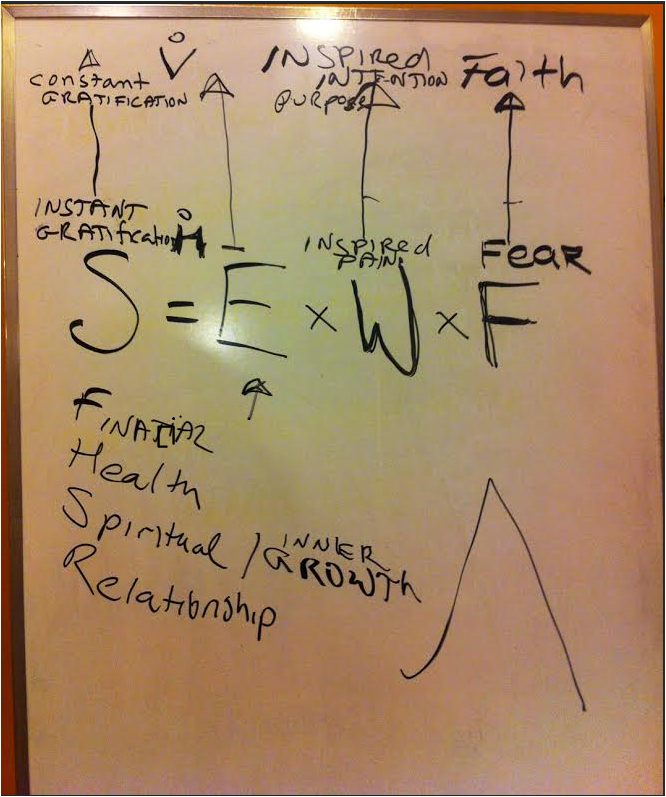 constant GRATIFICATION
V
INSPIRED INTENTION
PURPOSE
Faith
INSTANT GRATification
H
INSPIRED PAIN
Fear
S = E x W x F
Health
Spiritual / INNER GROWTH
Relationship